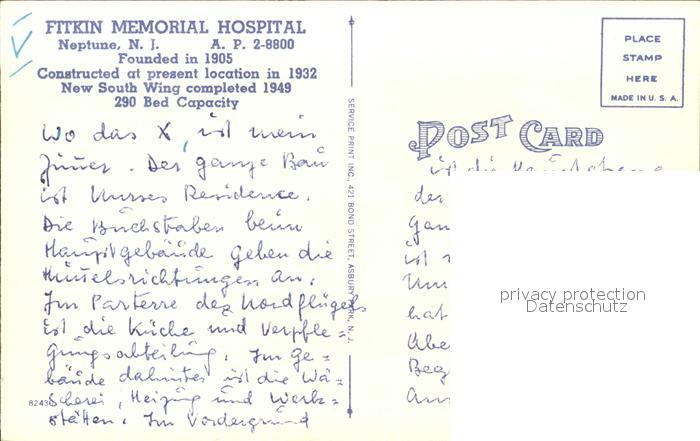 FITKIN MEMORIAL HOSPITAL
Neptune, N. J. A. P. 2-8800
Founded in 1905
Constructed at present location in 1932
New South Wing completed 1949
290 Bed Capacity
Wo das X, ist mein
Zimmer. Der ganze Bau
ist Nurses Residence.
Die Buchstaben beim
Hauptgebäude geben die
Himmelsrichtungen an.
Im Parterre des Nordflügels
ist die Küche und Verpfle=
gungsabteilung. Im Ge=
bäude dahinter ist die Wä=
scherei, Heizung und Werk=
stätten. Im Vordergrund
8243
SERVICE PRINT INC., 421 BOND STREET, ASBURY PARK, N. J.
PLACE
STAMP
HERE
MADE IN U. S. A.
POST CARD
ist die
der
ist
hat
privacy protection
Datenschutz